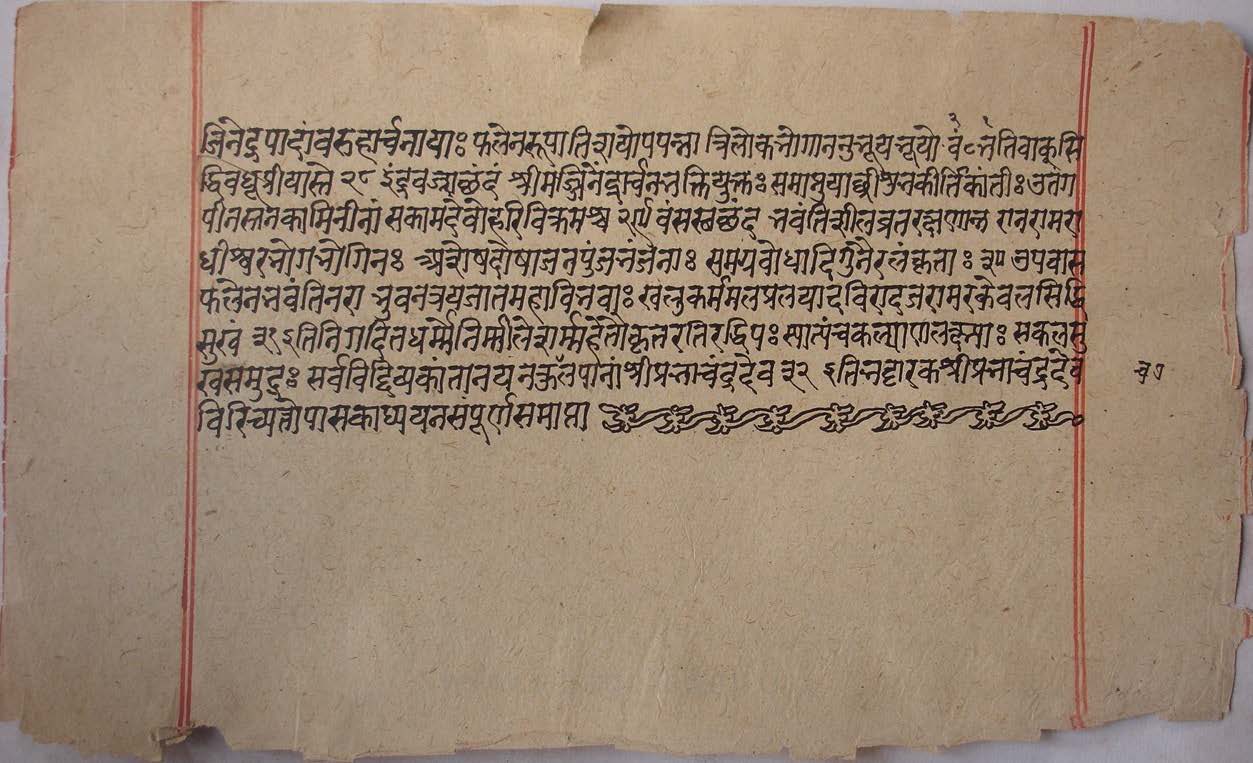 जिनेंद्रपादांबरुहार्चनायाः फलेनरूपातिशयोपपन्ना त्रिलोकभोगाननुभूयभूयो
द्विवधूप्रीयास्ते २८ इंद्रवज्राछंदं श्रीमज्जिनेंद्रार्चनभक्तियुक्तः समाप्नुया
पीनस्तनकामिनीनां सकामदेवोहरिविक्रमश्च २९ वंसस्थछंद भवंतिशीलव्रतरक्षणान्न रानरामरा
धीश्वरभोगभोगिनः अशेषदोषाजनपुंजभंजनाः समग्रबोधादिगुनैरलंकृताः ३० उपवास
फलेनभवंतिनरा भुवनत्रयजातमहाविभवाः खलुकर्ममलप्रलयादचिरादजरामरकेवलसिद्धि
सुखं ३१ इतिनिगदितधर्मे सकलसु
खसमुद्रः सर्वविद्दिव्यकांतानयन श्रीप्रभाचंद्रदेव ३२ इतिभट्टारकश्रीप्रभाचंद्रदेव
विरिच्यतोपासकाध्ययनसंपूर्णसमाप्ता